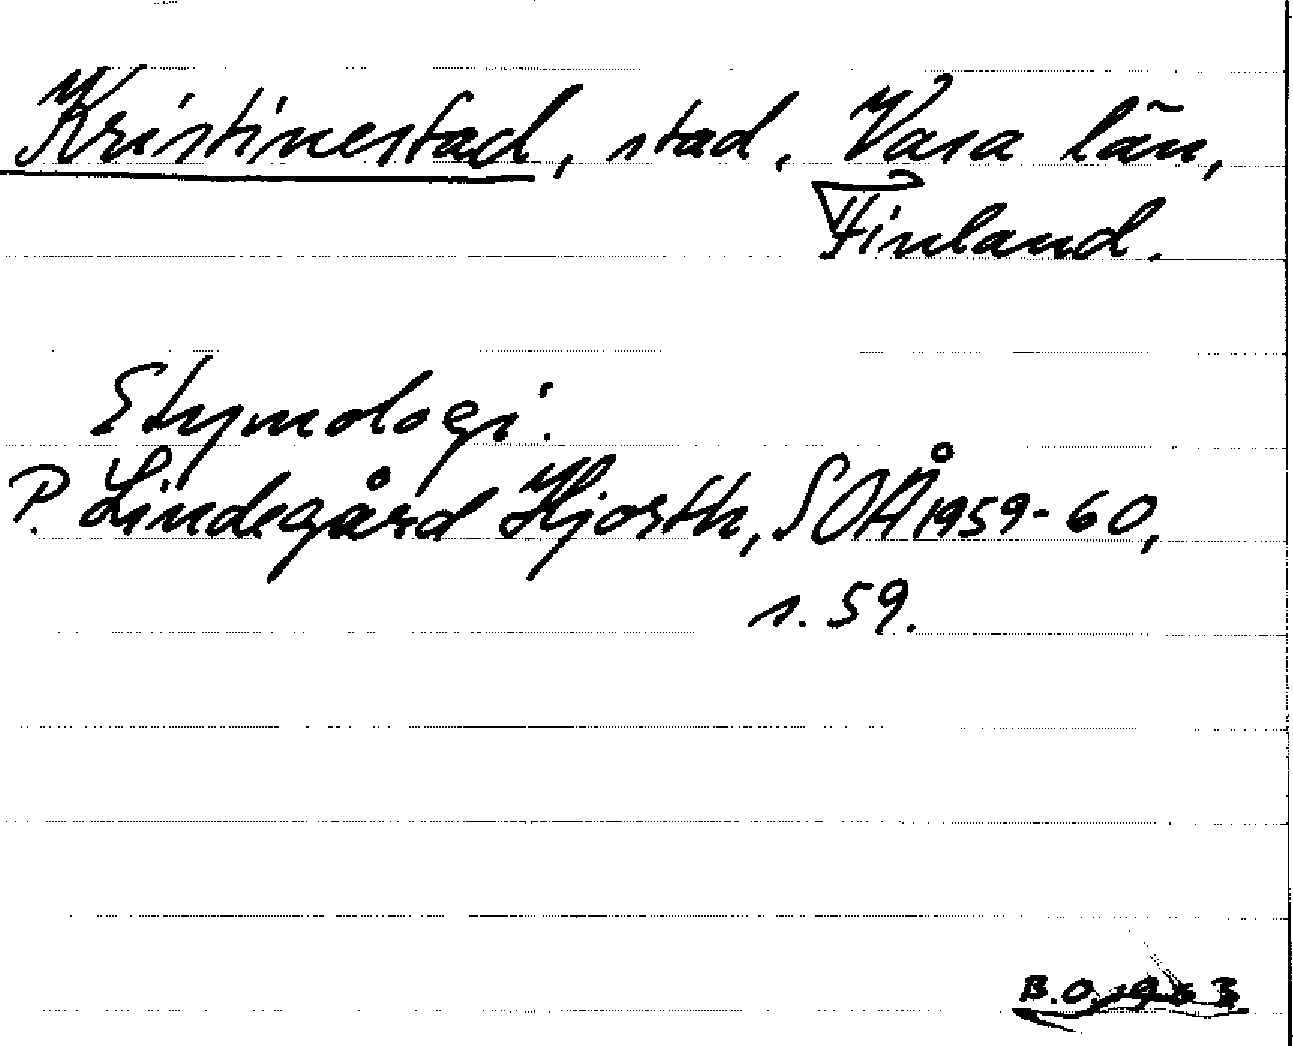 Kristinestad, stad. Vasa län,
Finland.
Etymologi.
P. Lindegård Hjorth, SOÅ 1959-60,
s. 59.
B.O. 1963